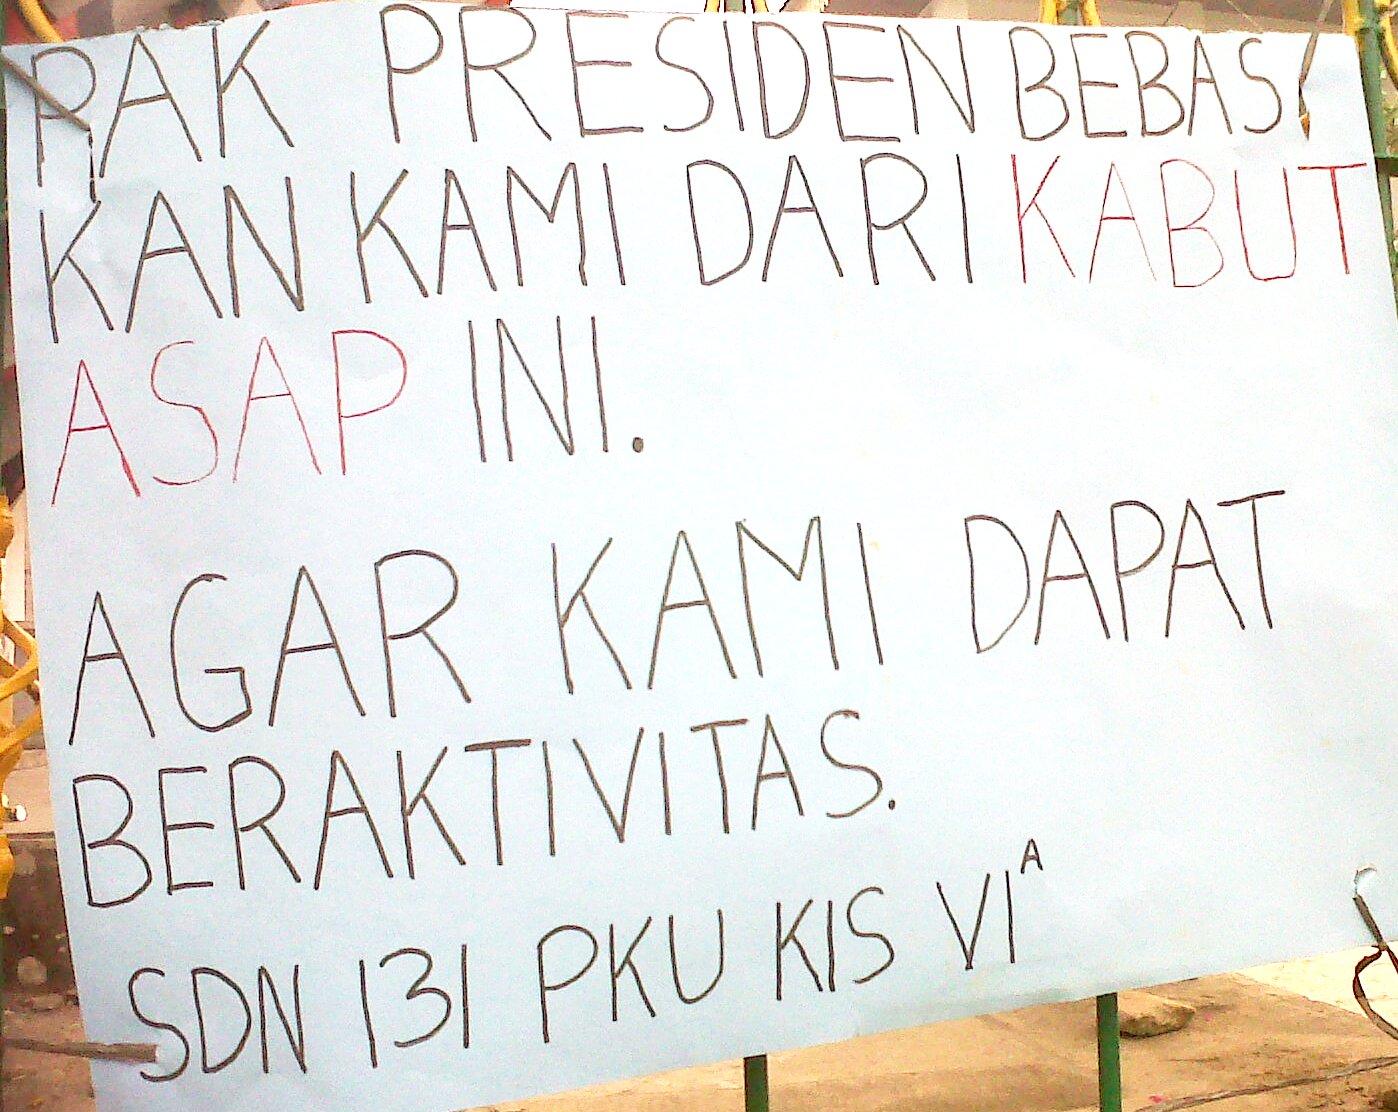 PAK PRESIDEN BEBAS
KAN KAMI DARI KABUT
ASAP INI.
AGAR KAMI DAPAT
BERAKTIVITAS.
SDN 131 PKU KIS VI A